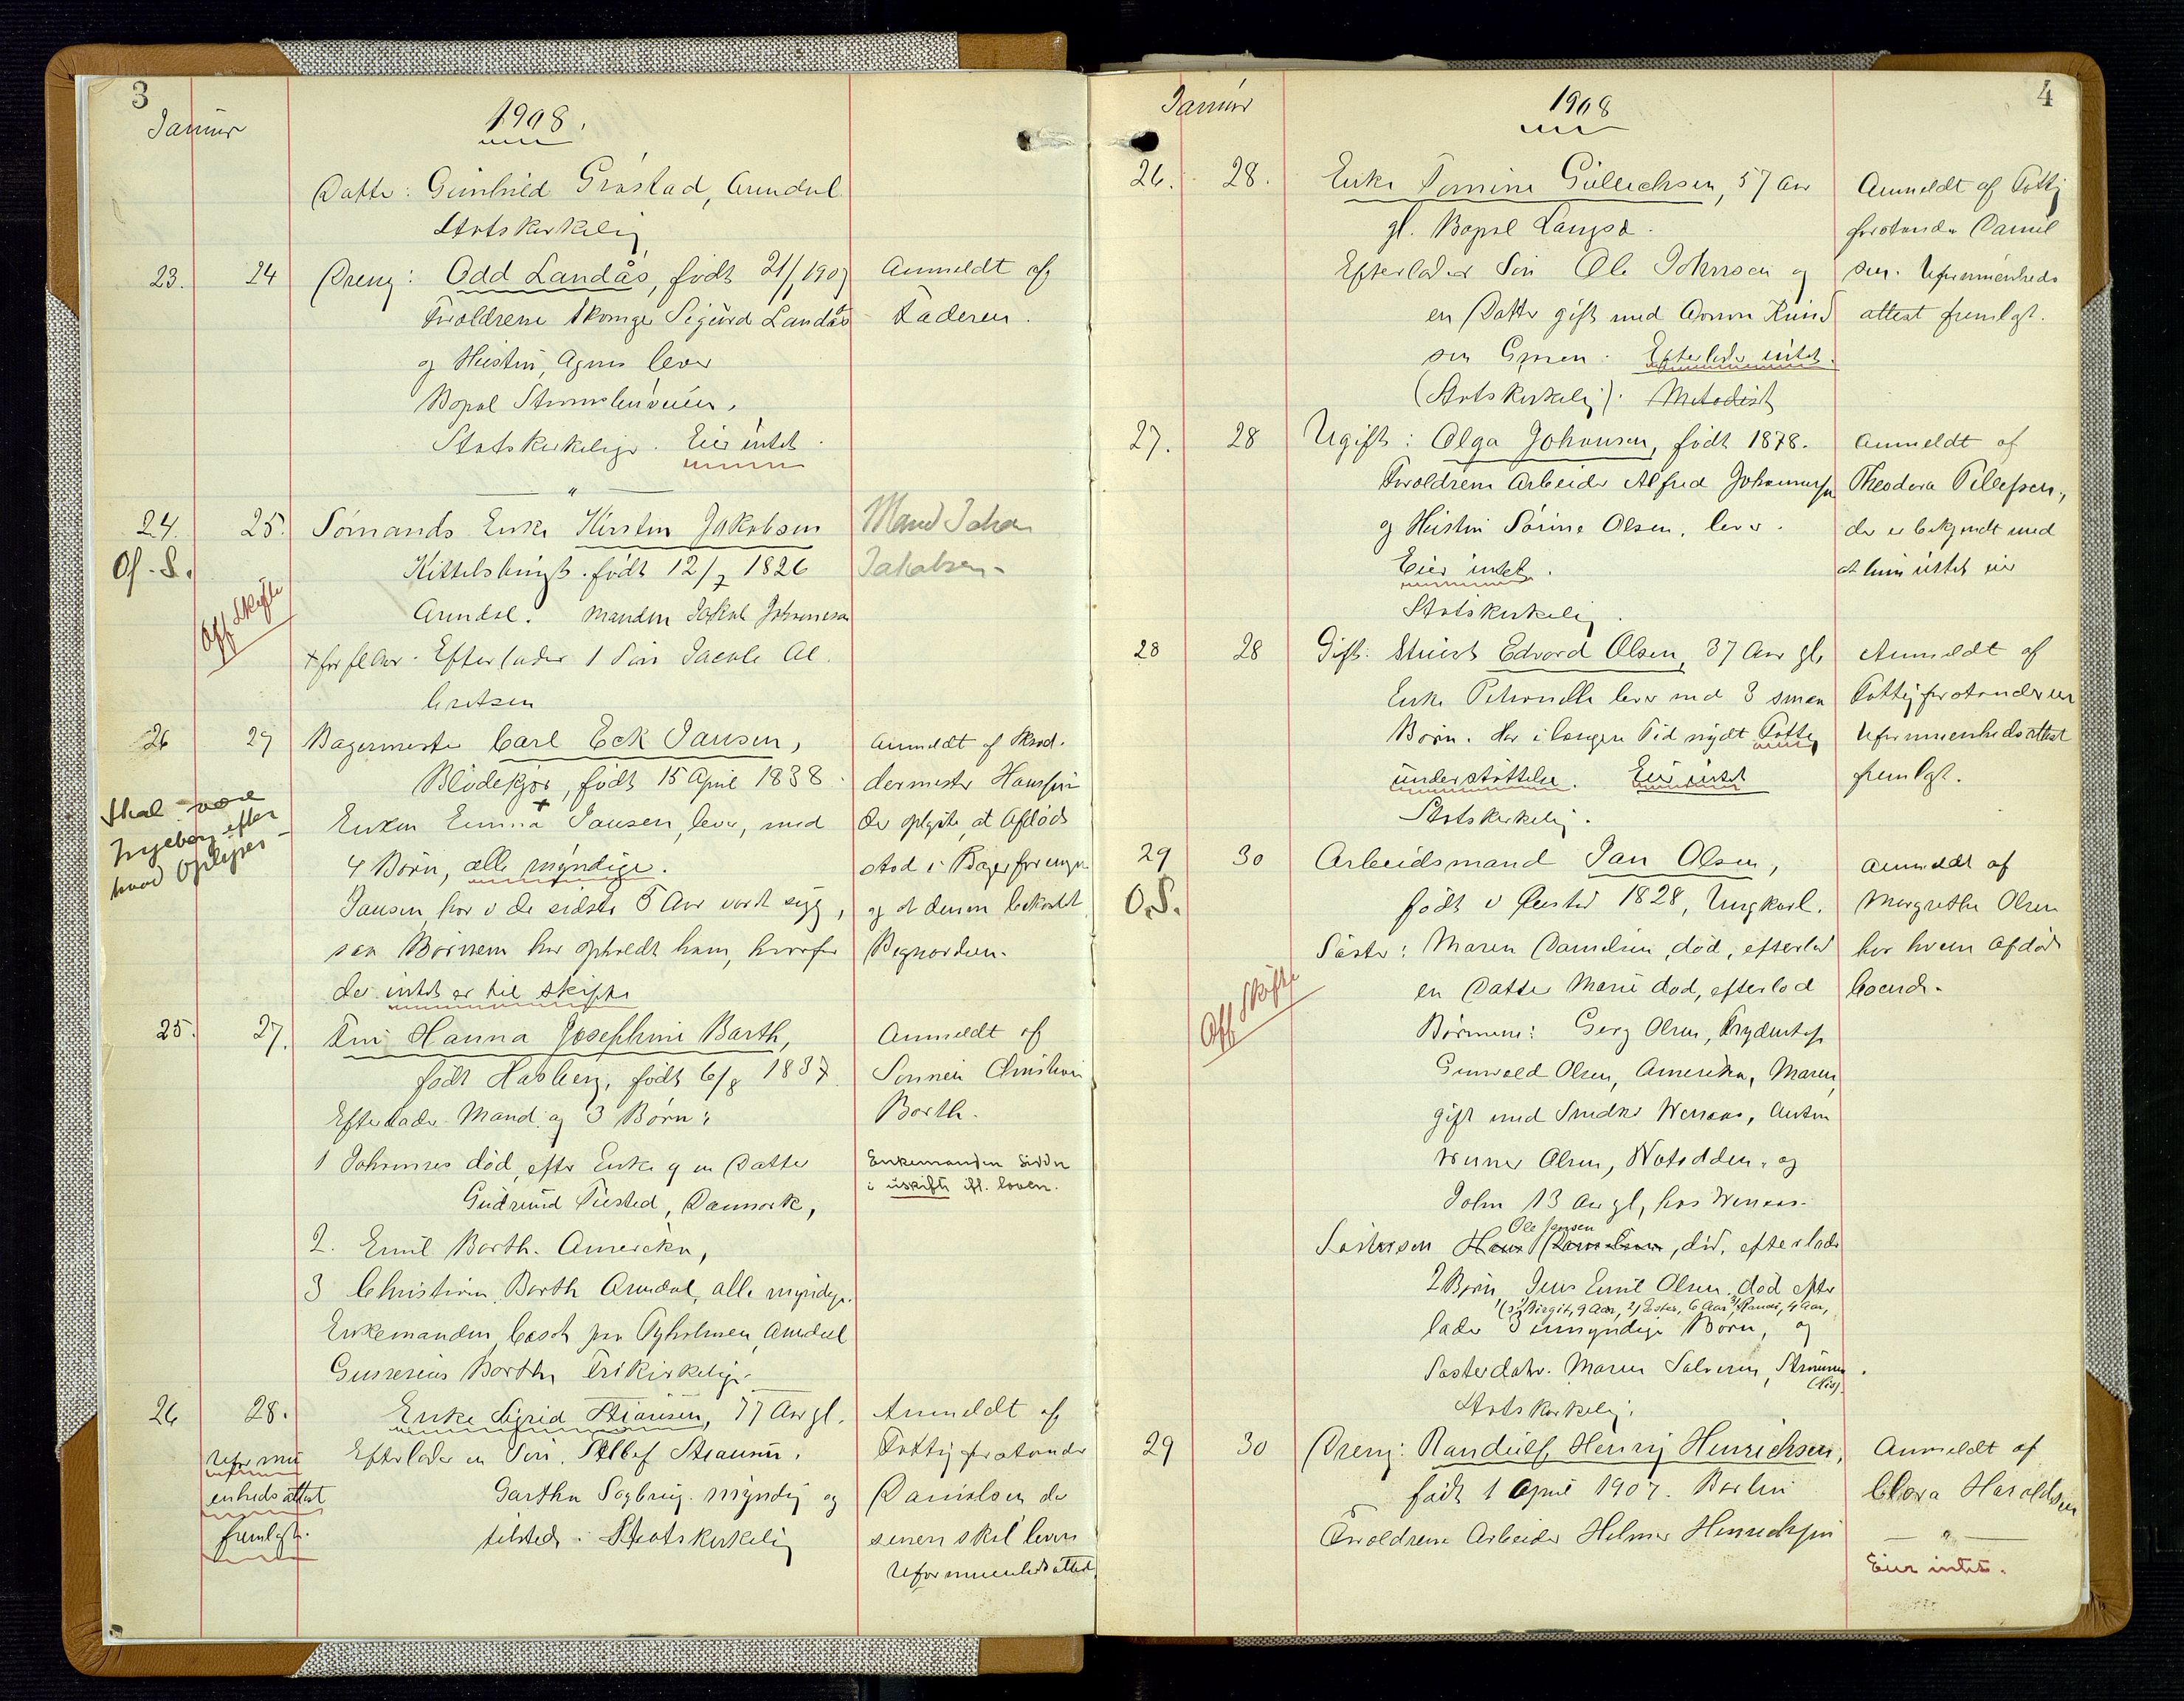 3
Januar
1908.
Datter: Gunhild Gråstad, Arendal
Statskirkelig
23. 24 Dreng: Odd Landås, født 21/1 1907 Anmeldt af
Forældrene Skomger Sigurd Landås Faderen.
og Hustru, Agnes lever
Bopæl
Statskirkelige. Eier intet.
24. 25. Sømands Enke Kirsten Jakobsen Mand Johan
Of. S. Kittelsbugt. født 12/7 1826 Jakobsen
Off Skifte
Arendal. Manden Jakob Johannesen
+ for fl Aar. Efterlader 1 Søn Jacob Al
bretsen
26 27 Bagermester Carl Eck Jansen, Anmeldt af Skræd.
Blødekjær, født 15 April 1838. dermester Hanssen
Skal være
Ingeborg efter
hvad Oplyses
Enken Emma + Jansen, lever, med der oplyste, at Afdøde
4 Børn, alle myndige. stod i Bagerforeningen
Jansen har i de sidste 5 Aar vært syg, og at denne bekosted
saa Børnene har opholdt ham, hvorfor Begravelsen.
der intet er til Skifte
25. 27. Fru Hanna Josephine Barth, Anmeldt af
født Hasberg, født 6/8 1837. Sønnen Christian
Efterlader Mand og 3 Børn: Barth.
1 Johannes død, efter Enke og en Datter Enkemanden sidder
Gudrund Tisted, Danmark, i uskifte ifl. loven.
2. Emil Barth. Amerika,
3 Christian Barth Arendal, alle myndige.
Enkemanden bosat paa Tyholmen, Arendal
Barth, Frikirkelige
26 28. Enke Sigrid Stiansen, 77 Aar gl. Anmeldt af
Uformu
enheds attest
fremlagt.
Efterlader en Søn, Stiansen. Fattigforstander
Gartha Sagbrug. myndig og Danielsen der
tilsted. Statskirkelig senere skal levere
Uformuenheds attest
4
Januar
1908
26. 28. Enke Tomine Gullichsen, 57 Aar Anmeldt af Fattig
gl. Bopæl Langsæ. forstander Daniel
Efterlader Søn Ole Johnsen og sen. Uformuenheds
en Datter gift med Aanon Knud attest fremlagt.
sen Grisen. Efterlader intet.
(Statskirkelig). Metodist
27. 28 Ugift: Olga Johansen, født 1878. Anmeldt af
Forældrene Arbeider Alfred Johannesen Theodora Tellefsen,
og Hustru Sørine Olsen, lever. der er bekjendt med
Eier intet. at hun intet eier
Statskirkelig.
28 28 Gift: Stuert Edvard Olsen, 37 Aar gl. Anmeldt af
Enke Petronelle lever med 3 smaa Fattigforstanderen
Børn. Har i længere Tid nydt Fattig Uformuenhedsattest
understøttelse. Eier intet fremlagt.
Statskirkelig.
29 30 Arbeidsmand Jan Olsen, Anmeldt af
O.S. født i Øiestad 1828, Ungkarl. Margrethe Olsen
Søster: Maren Danielsen, død, efterlod hos hvem Afdøde
en Datter Marie død, efterlod boende.
Off Skifte
Børnene: Georg Olsen,
Gunvald Olsen, Amerika, Maren,
gift med Snedker Wernes, Anton
Werner Olsen, Notodden, og
John 13 Aar gl, hos Wernes.
Ole Jansen
Søstersøn Hans Danielsen, død, efterlader
2 Børn Jens Emil Olsen død efter
1) Birgit, 9 Aar, 2) Ester, 6 Aar 3) Randi, 4 Aar,
lader 3 umyndige Børn, og
Søsterdatr. Maren Salvesen, Strømmen
Statskirkelig.
29 30 Dreng: Randulf Henry Henrichsen, Anmeldt af
født 1 April 1907. Berlin Clara Haraldsen
Forældrene Arbeider Helmer Henrichsen
Eier intet.